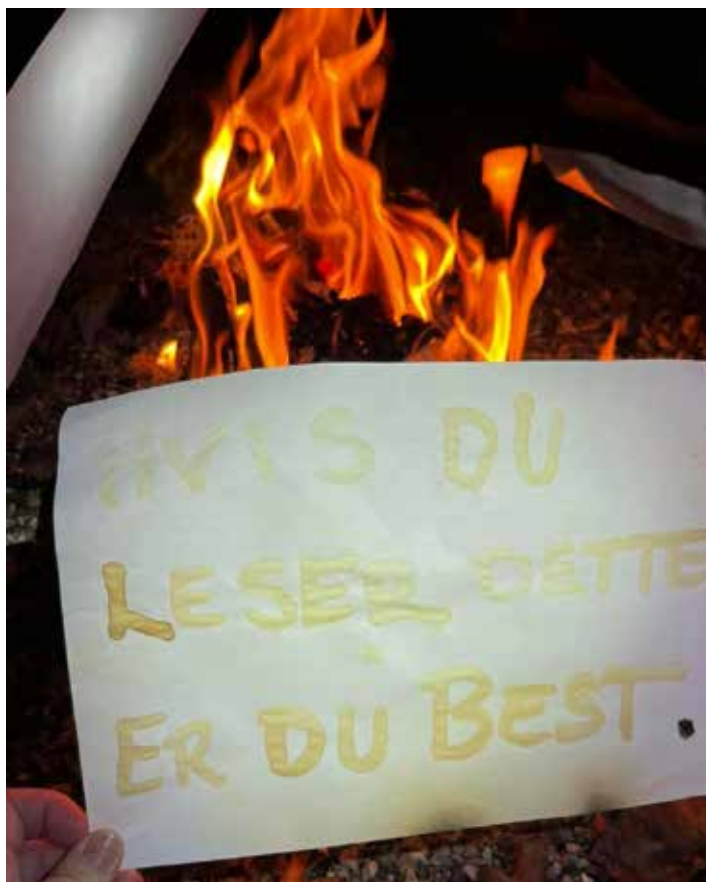 HVIS DU
LESER DETTE
ER DU BEST.